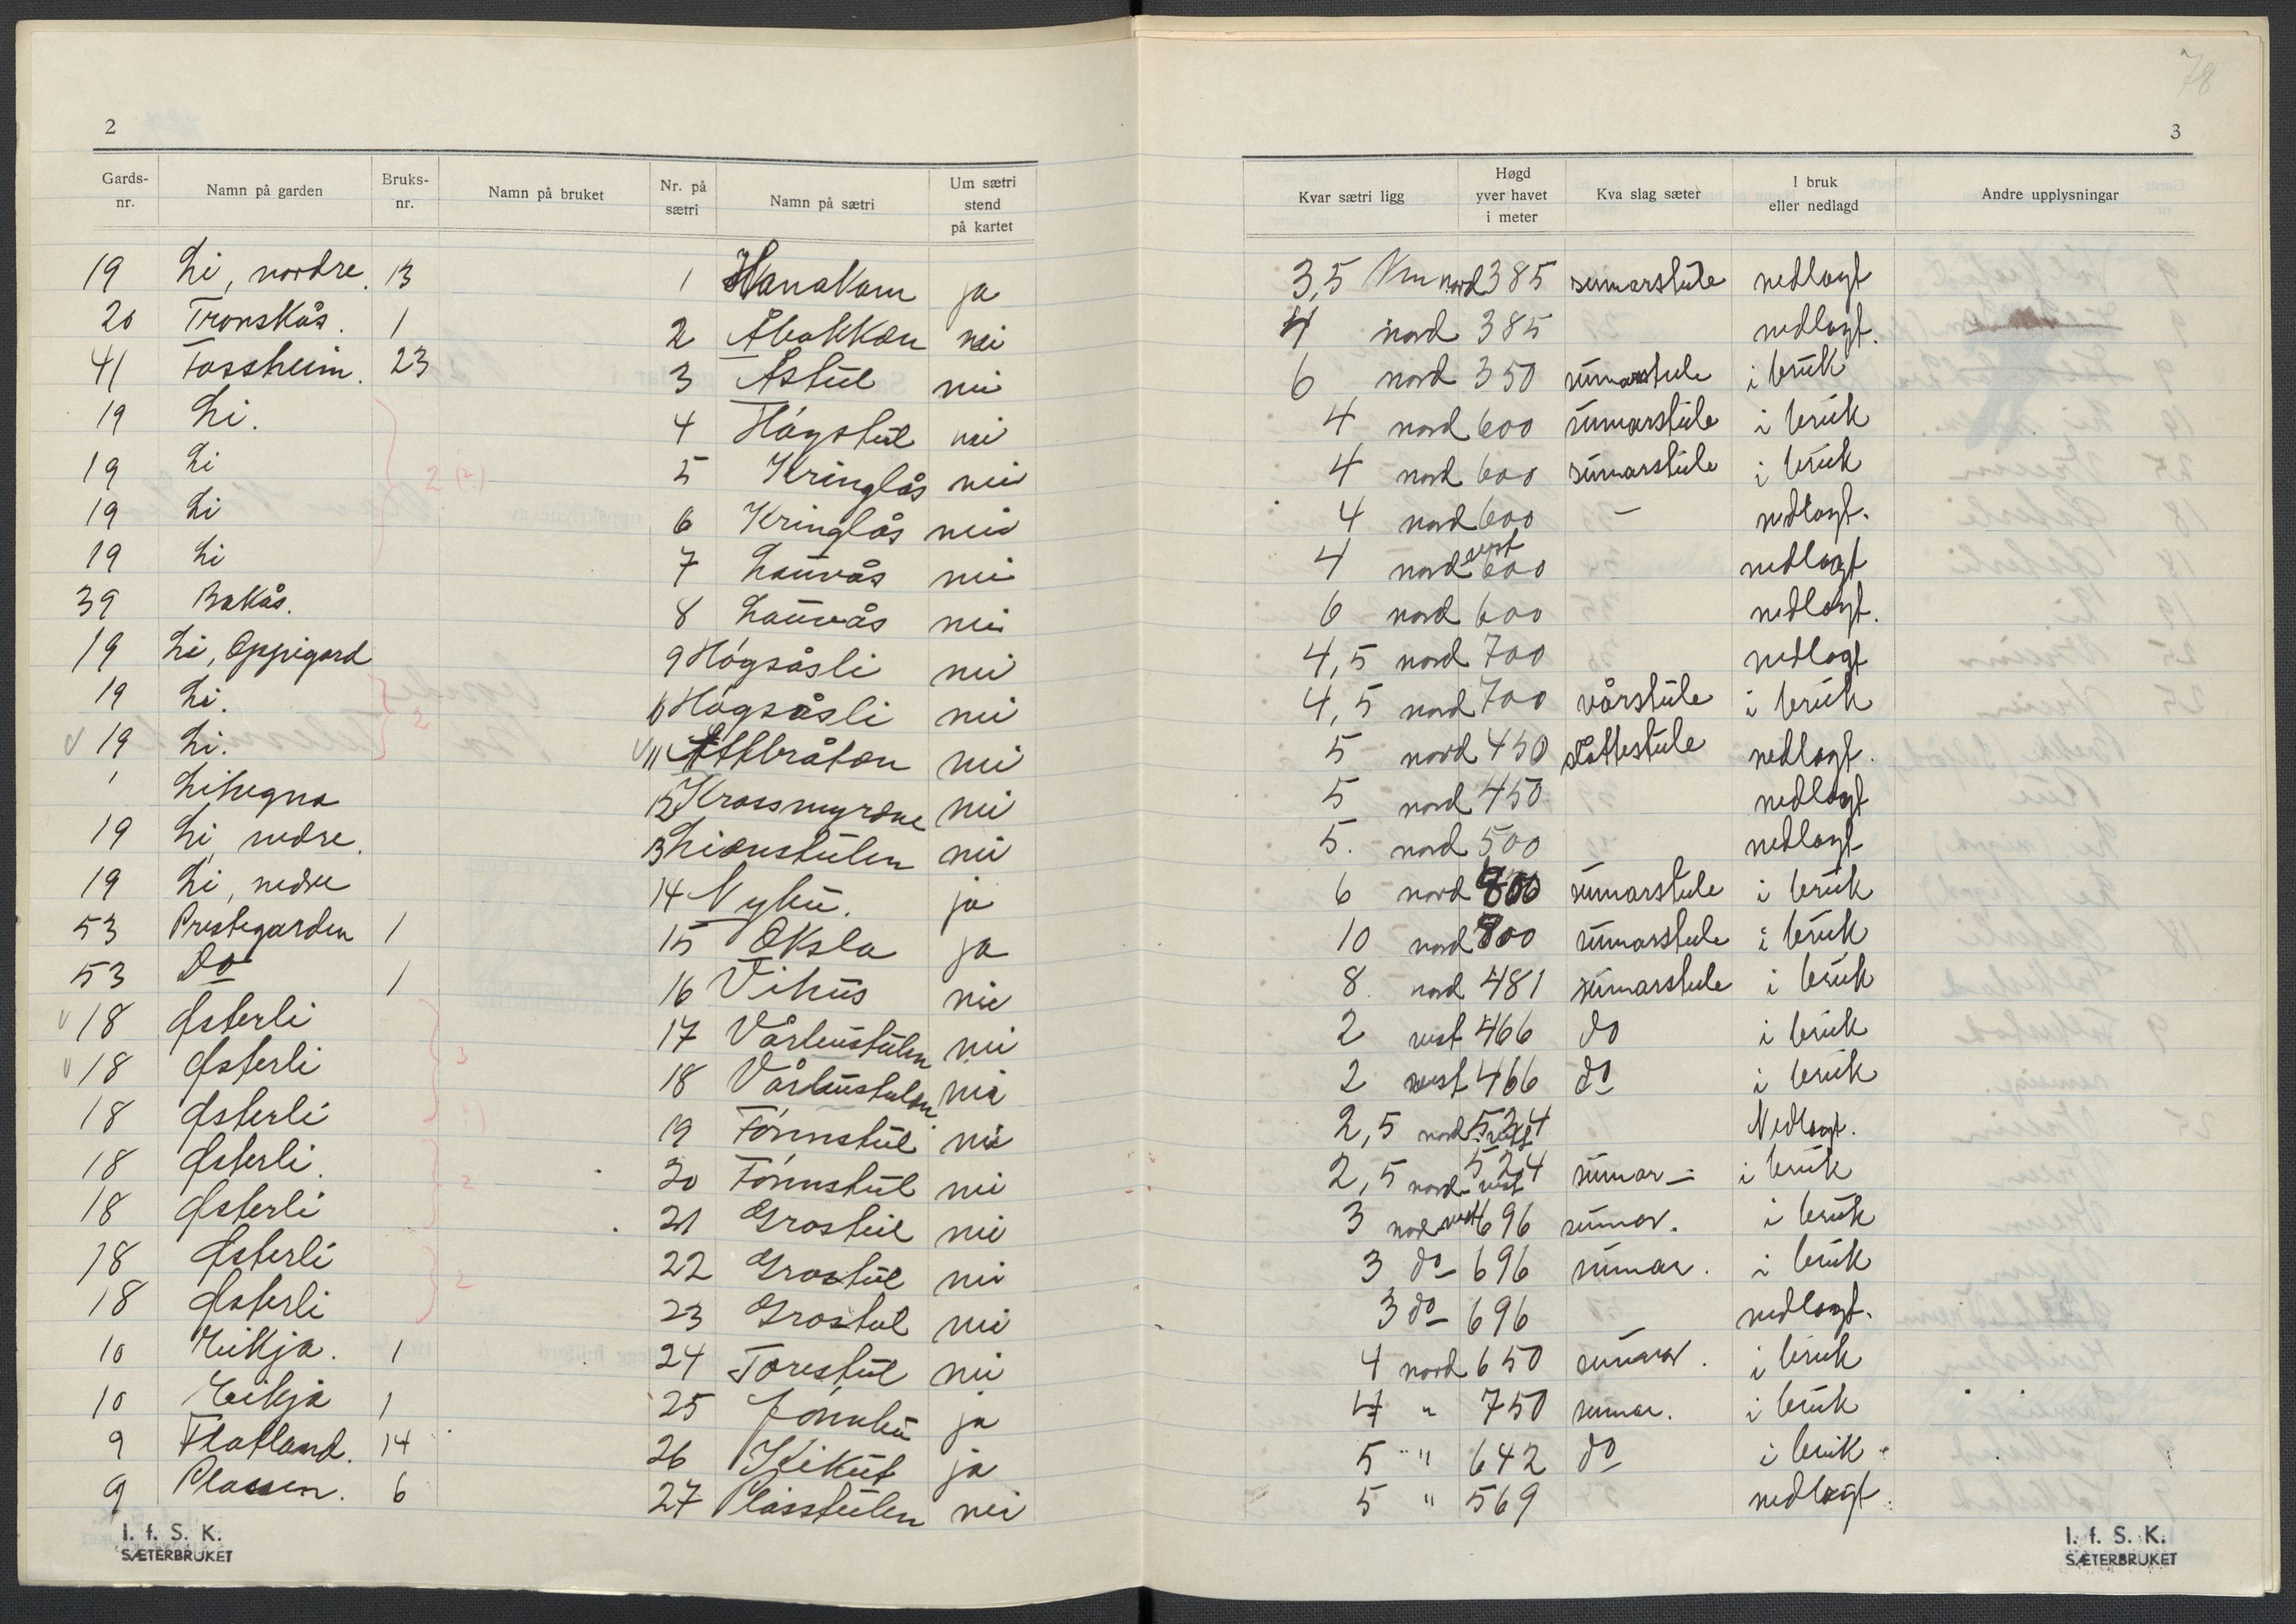 78
2
3
Gards-nr. Namn på garden Bruks-nr. Namn på bruket Nr. på sætri Namn på sætri Um sætri stend på kartet Kvar sætri ligg Høgd yver havet i meter Kva slag sæter I bruk eller nedlagd Andre upplysningar
19 Li, nordre. 13 1 ja 3,5 Km nord 385 sumarstule nedlagt
20 Tronskås. 1 2 Åbakkan nei 4 nord 385 nedlagt.
41 Fossheim. 23 3 Åstul nei 6 nord 350 sumarstule i bruk
19 Li. 4 Høgstul nei 4 nord 600 sumarstule i bruk
19 Li 2 (2) 5 Kringlås nei 4 nord 600 sumarstule i bruk
19 Li 6 Kringlås nei 4 nord 600 — nedlagt.
19 Li 7 Lauvås nei 4 nord vest 600 nedlagt
39 Bakås. 8 Lauvås nei 6 nord 600 nedlagt.
19 Li, Oppigard 9 Høgsåsli nei 4,5 nord 700 nedlagt
19 Li. 2 10 Høgsåsli nei 4,5 nord 700 vårstule i bruk
v 19 Li. v 11 nei 5 nord 450 slåttestule nedlagt.
' Lihegna 12 Krossmyrane nei 5 nord 450 nedlagt
19 Li nedre. 13 Lianstulen nei 5. nord 500 nedlagt
19 Li, nedre 14 Nybu. ja 6 nord sumarstule i bruk
53 Prestegarden 1 15 Oksla ja 10 nord 800 sumarstule i bruk
53 Do 1 16 Vihus nei 8 nord 481 sumarstule i bruk
v 18 Østerli 17 Vårbustulen nei 2 vest 466 do i bruk
v 18 Østerli 3 18 Vårbustulen nei 2 vest 466 do i bruk
18 Østerli 19 Fonnstul nei 2,5 nord-vest 524 Nedlagt.
18 Østerli. 2 20 Fonnstul nei 2,5 nord-vest 524 sumar — i bruk
18 Østerli 21 Grostul nei 3 nord vest 696 sumar. i bruk
18 Østerli 2 22 Grostul nei 3 do 696 sumar. i bruk
18 Østerli 23 Grostul nei 3 do 696 nedlagt.
10 Eikja. 1 24 Torestul nei 4 nord 650 sumar. i bruk
10 Eikja 1 25 Jønnbu ja 4 " 750 sumar. i bruk
9 Flatland. 14 26 Kikut ja 5 " 642 do i bruk.
9 Plassen. 6 27 Plasstulen nei 5 " 569 nedlagt.
I. f. S. K.
SÆTERBRUKET
I. f. S. K.
SÆTERBRUKET